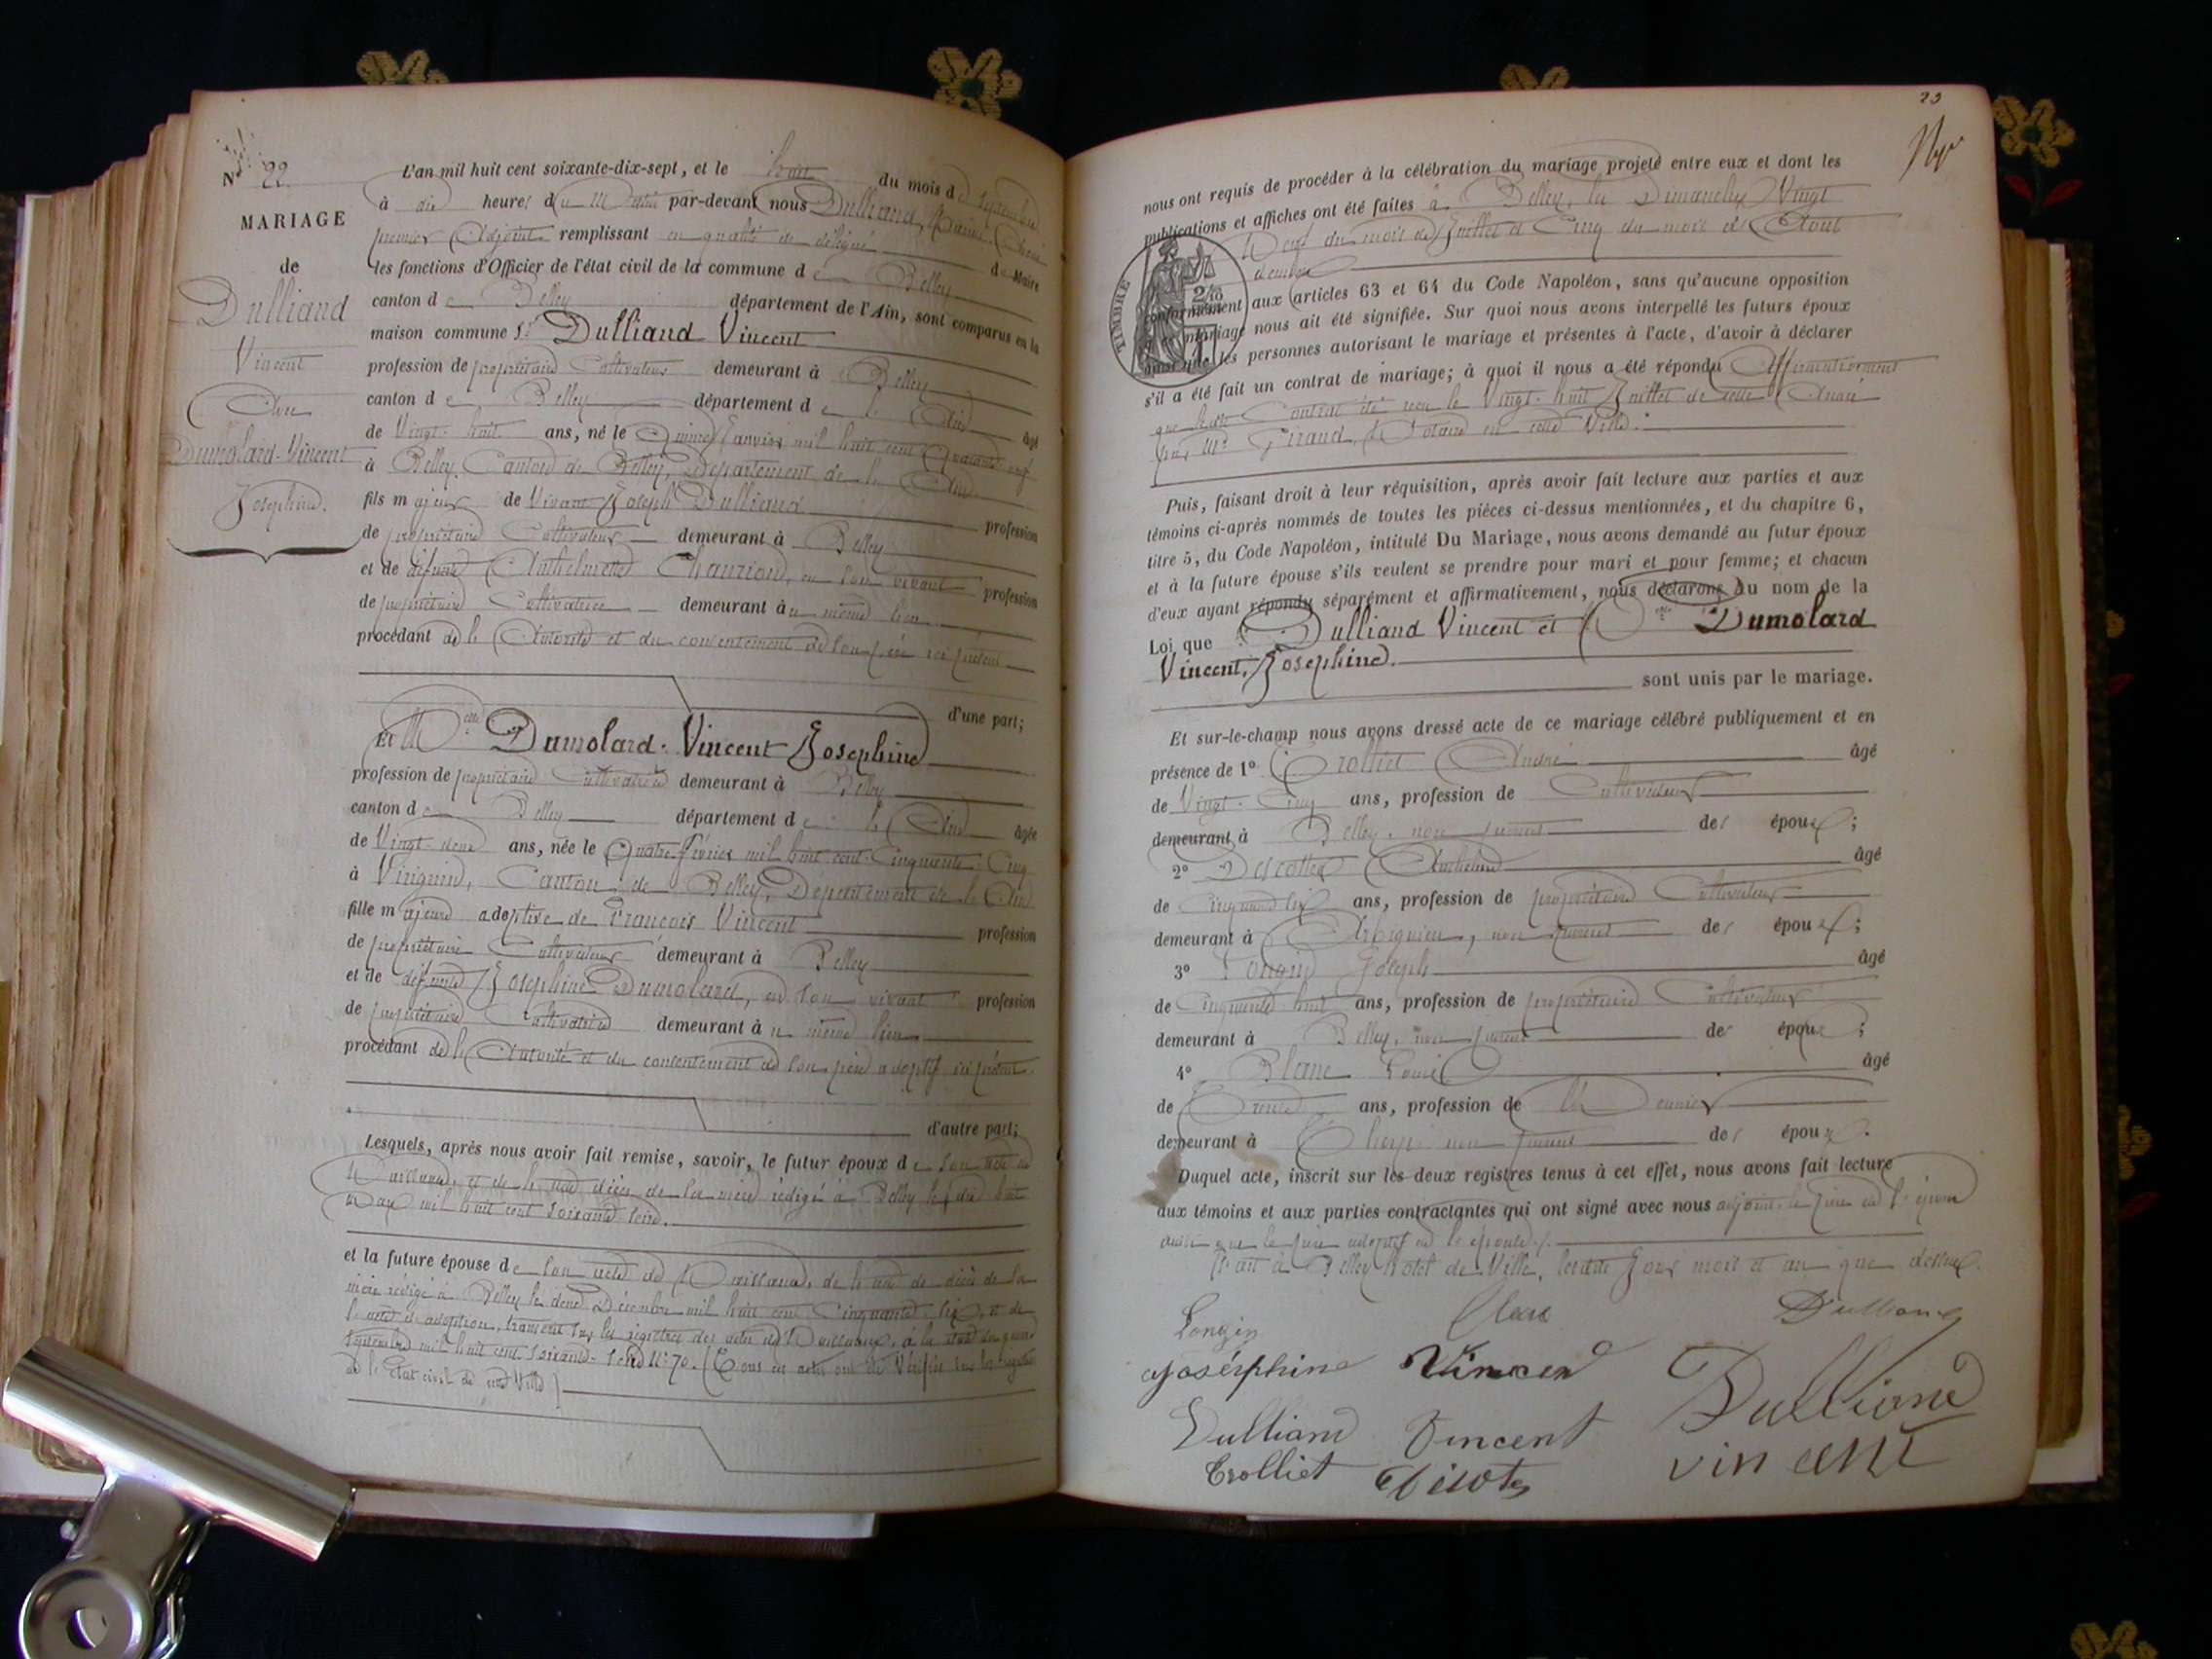 N° 22
MARIAGE
de
Dulliand
Vincent
Avec
Dumolard-Vincent
Josephine.
L'an mil huit cent soixante-dix-sept, et le huit du mois de Septembre
à dix heures du Matin par-devant nous Dulliand,
premier Adjoint remplissant en qualité de délégué du Maire
les fonctions d'Officier de l'état civil de la commune de Belley
canton de Belley département de l'Ain, sont comparus en la
maison commune Sr Dulliand Vincent
profession de propriétaire Cultivateur demeurant à Belley
canton de Belley département de l'Ain âgé
de Vingt-huit ans, né le Quinze Janvier mil huit cent Quarante neuf
à Belley, Canton de Belley, Département de l'Ain
fils majeur de Vivant Joseph Dulliand profession
de propriétaire Cultivateur demeurant à Belley
et de défunte Anthelmette Chaurion, en son vivant profession
de propriétaire Cultivatrice demeurant au même lieu
procédant de l'Autorité et du consentement de son père ici présent
d'une part;
Et Melle Dumolard-Vincent Josephine
profession de propriétaire Cultivatrice demeurant à Belley
canton de Belley département de l'Ain âgée
de Vingt-deux ans, née le Quatre Février mil huit cent Cinquante-Cinq
à Virignin, Canton de Belley, Département de l'Ain
fille majeure adoptive de François Vincent profession
de propriétaire Cultivateur demeurant à Belley
et de défunte Josephine Dumolard, en son vivant profession
de propriétaire Cultivatrice demeurant au même lieu
procédant de l'Autorité et du consentement de son père adoptif ici présent
d'autre part;
Lesquels, après nous avoir fait remise, savoir, le futur époux de son acte de
Naissance, et de l'acte de décès de sa mère rédigé à Belley le dix huit
mil huit cent soixante-seize.
et la future épouse de son acte de Naissance, de l'acte de décès de sa
mère rédigé à Belley le deux Décembre mil huit cent Cinquante-six, et de
l'acte d'adoption, transcrit sur les registres des actes de Naissance, à la date du
Septembre mil huit cent soixante-seize N° 70. (Tous ces actes ont été Vérifiés sur les registres
de l'Etat civil de cette Ville)
23
nous ont requis de procéder à la célébration du mariage projeté entre eux et dont les
publications et affiches ont été faites à Belley, les Dimanches Vingt
Neuf du mois de Juillet et Cinq du mois d'Août
TIMBRE
2/10
conformément aux articles 63 et 64 du Code Napoléon, sans qu'aucune opposition
au mariage nous ait été signifiée. Sur quoi nous avons interpellé les futurs époux
ainsi que les personnes autorisant le mariage et présentes à l'acte, d'avoir à déclarer
s'il a été fait un contrat de mariage; à quoi il nous a été répondu Affirmativement
que ledit Contrat été reçu le Vingt-huit Juillet de cette Année
par Me Giraud, Notaire en cette Ville.
Puis, faisant droit à leur réquisition, après avoir fait lecture aux parties et aux
témoins ci-après nommés de toutes les pièces ci-dessus mentionnées, et du chapitre 6,
titre 5, du Code Napoléon, intitulé Du Mariage, nous avons demandé au futur époux
et à la future épouse s'ils veulent se prendre pour mari et pour femme; et chacun
d'eux ayant répondu séparément et affirmativement, nous déclarons au nom de la
Loi que Dulliand Vincent et Dumolard
Vincent, Josephine.
sont unis par le mariage.
Et sur-le-champ nous avons dressé acte de ce mariage célébré publiquement et en
présence de 1° Trolliet André âgé
de Vingt-Cinq ans, profession de Cultivateur
demeurant à Belley, non parent des époux;
2° Descottes Anthelme âgé
de Cinquante six ans, profession de propriétaire Cultivateur
demeurant à Arbignieu, non parent des époux;
3° Longin Joseph âgé
de Cinquante huit ans, profession de propriétaire Cultivateur
demeurant à Belley, non parent des époux;
4° Blanc Louis âgé
de Trente ans, profession de Meunier
demeurant à non parent des époux.
Duquel acte, inscrit sur les deux registres tenus à cet effet, nous avons fait lecture
aux témoins et aux parties contractantes qui ont signé avec nous adjoint, le père de l'époux
ainsi que le père adoptif de l'épouse.
Fait à Belley Hôtel de Ville, lesdits Jour mois et an que dessus.
Longin Blanc Dulliand
Josérphine Vincen Dulliand
Dulliand Vincent vincent
Trolliet